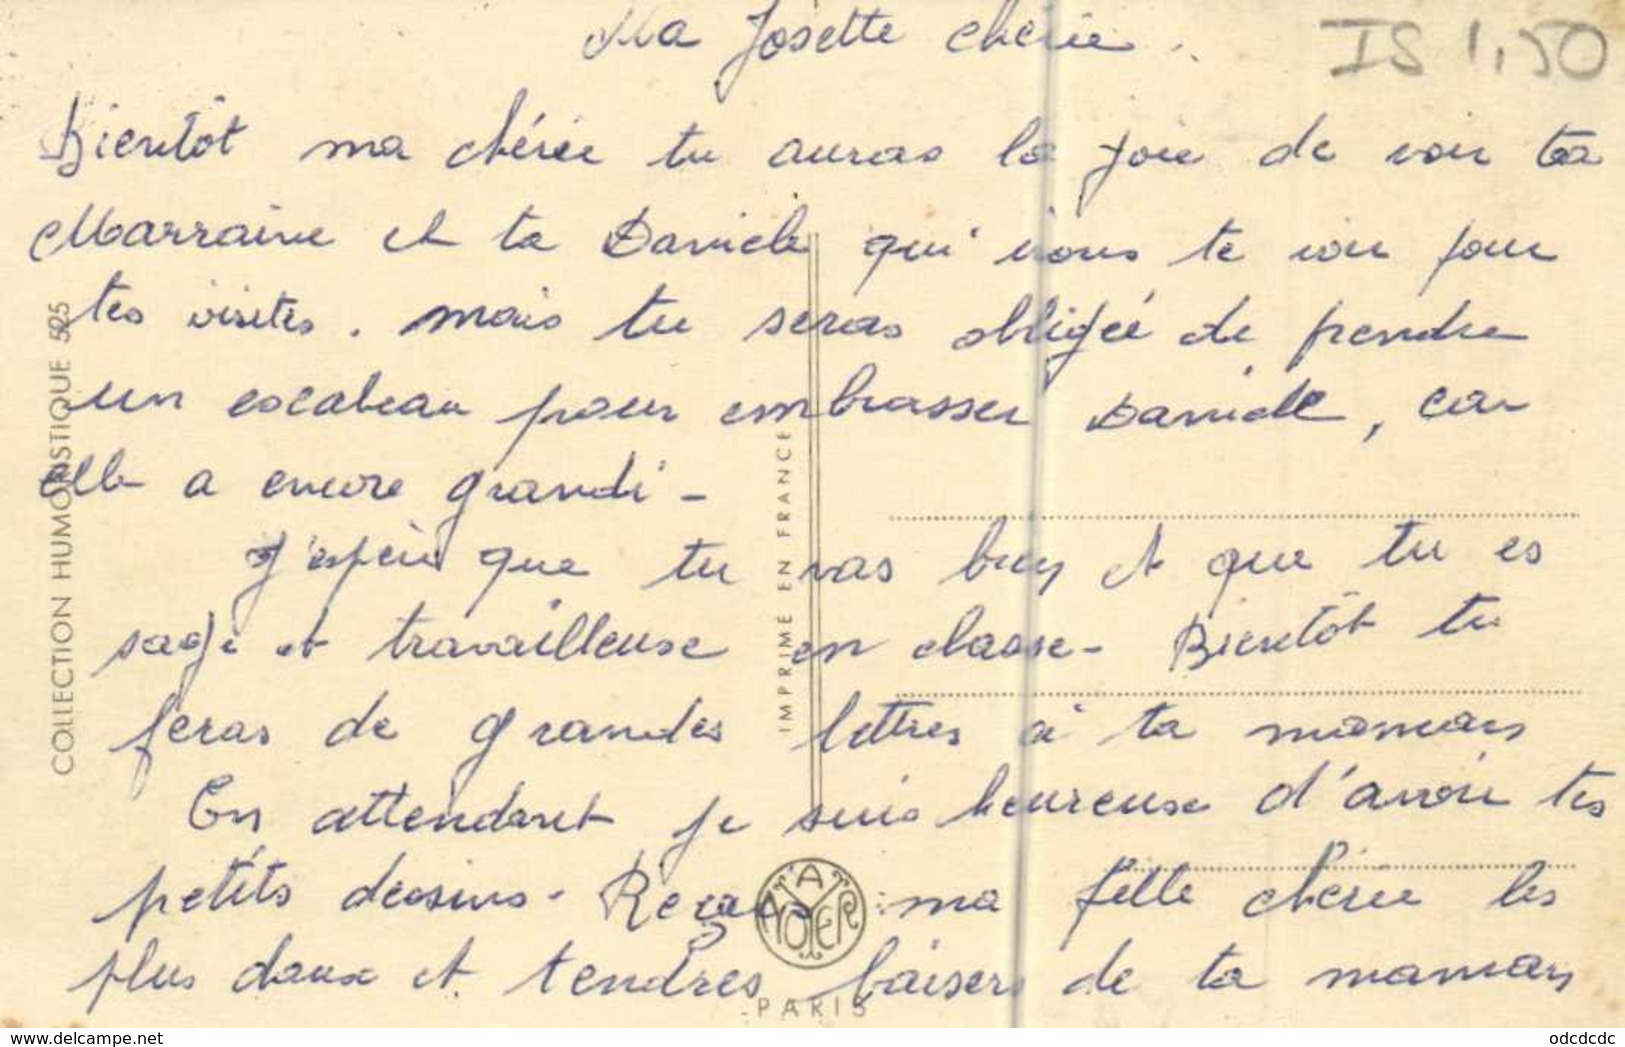 Ma Josette chérie.
IS 1,50
Bientôt ma chérie tu auras la joie de voir ta
Marraine et ta Danièle qui irons te voir pour
tes visites. mais tu seras obligée de prendre
un escabeau pour embrasser Danièle, car
elle a encore grandi -
J'espère que tu vas bien et que tu es
sage et travailleuse en classe - Bientôt tu
feras de grandes lettres à ta maman
En attendant je suis heureuse d'avoir tes
petits dessins - Reçois ma fille chérie les
plus doux et tendres baisers de ta maman
COLLECTION HUMORISTIQUE 525
IMPRIME EN FRANCE
PARIS
www.delcampe.net
odcdcdc